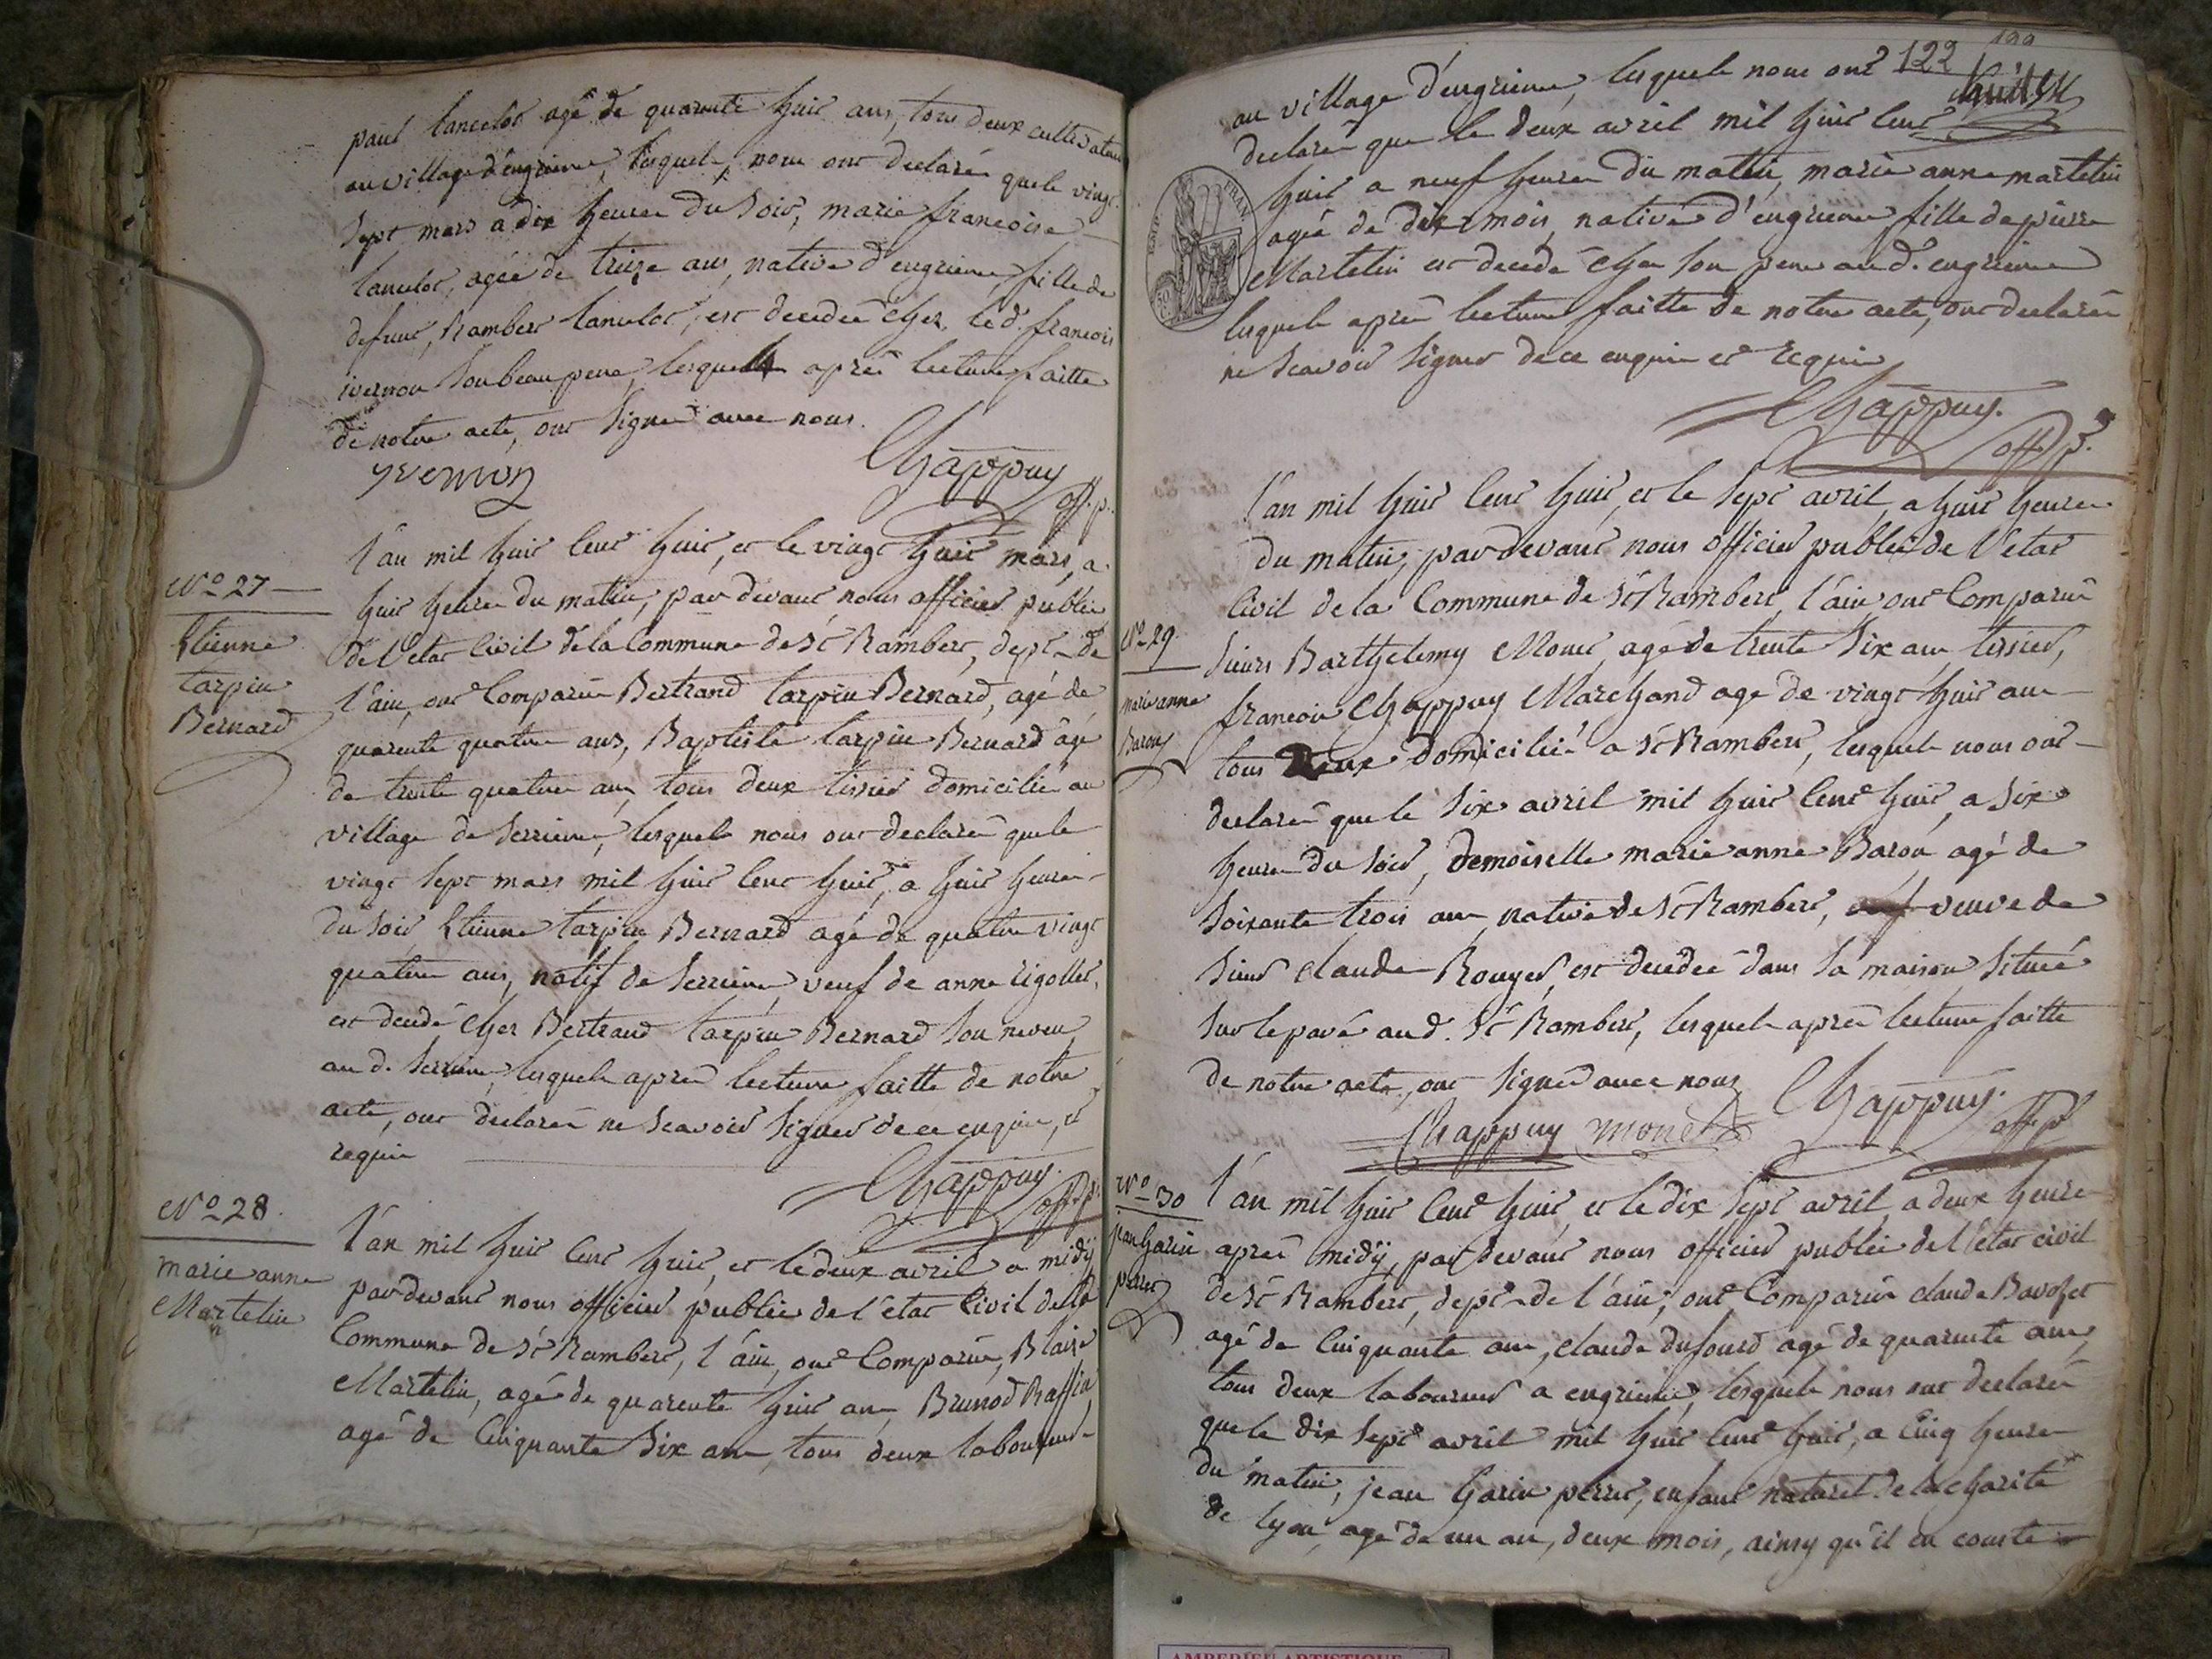 paul lancelot agé de quarante huit ans, tous deux cultivateurs
au village d'engrieme, lesquels, nous ont declarés que le vingt
sept mars a dix heures du soir, marie francoise
lancelot, agée de treize ans, native d'engrieme, fille de
defunt, Rambert lancelot, est decedée chez le d. francois
ivernon son beau pere, lesquels apres lecture faitte
de notre acte, ont signé avec nous.
yvernon Chappuy off. p.
l'an mil huit cent huit, et le vingt huit mars, a
N.o 27
huit heures du matin, par devant nous officier public
Etienne
de l'etat civil de la Commune de St Rambert, dept. de
tarpin
l'ain, ont Comparus Bertrand tarpin Bernard, agé de
Bernard
quarente quatre ans, Baptiste tarpin Bernard agé
de trente quatre ans, tous deux tissier domicilié au
village de serrieme, lesquels nous ont declarés que le
vingt sept mars mil huit cent huit, a huit heures
du soir, Etienne tarpin Bernard agé de quatre vingt
quatre ans, natif de serrieme, veuf de anne rigollet,
est decedé chez Bertrand tarpin Bernard son neveu
au d. serrieme, lesquels apres lecture faitte de notre
acte, ont declarés ne scavoir signer de ce enquis, et
requis
Chappuy off. p.
N.o 28.
l'an mil huit cent huit, et le deux avril a midÿ
marie anne
par devant nous officier public de l'etat civil de la
Martelin
Commune de St Rambert, l'ain, ont Comparus, Blaise
Martelin, agé de quarente huit ans, Brunod Raffin,
agé de cinquante six ans, tous deux laboureurs
122
au village d'engrieme, lesquels nous ont
declarés que le deux avril mil huit cent
huit a neuf heures du matin, marie anne martelin
EMP. FRAN.
agée de dix mois, native d'engrieme, fille de pierre
Martelin est decedé chez son pere au d. engrieme
lesquels apres lecture faitte de notre acte, ont declarés
ne scavoir signer de ce enquis et requis
Chappuy. off. p.
l'an mil huit cent huit, et le sept avril, a huit heures
du matin, par devant nous officier public de l'etat
civil de la Commune de St Rambert, l'ain, ont Comparus
N.o 29.
sieurs Barthelemy Monet, agé de trente six ans, tissier,
marie anne
francois Chappuy Marchand agé de vingt huit ans
Baron
tous deux domiciliés a St Rambert, lesquels nous ont
declarés que le six avril mil huit cent huit, a six
heures du soir, demoiselle marie anne Baron, agé de
soixante trois ans, native de St Rambert, veuve de
sieur claude Rouyer, est decedée dans sa maison, situeé
sur le pavé au d. St Rambert, lesquels apres lecture faitte
de notre acte, ont signés avec nous
Chappuy monet Chappuy. off. p.
N.o 30
l'an mil huit cent huit, et le dix sept avril a deux heures
jean garin
apres midÿ, par devant nous officier public de l'etat civil
perret
de St Rambert, dept. de l'ain, ont Comparus claude Bavozet
agé de cinquante ans, claude dufourd agé de quarente ans,
tous deux laboureur a engrieme, lesquels nous ont declarés
que le dix sept avril mil huit cent huit, a cinq heures
du matin, jean garin perret, enfant naturel de la charité
de lyon, agé de un an, deux mois, ainsy qu'il en conste
AMBERIEU ARTISTIQUE